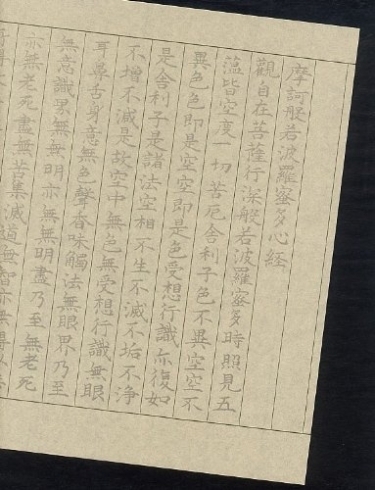 摩訶般若波羅蜜多心経
觀自在菩薩行深般若波羅蜜多時照見五
薀皆空度一切苦厄舎利子色不異空空不
異色色即是空空即是色受想行識亦復如
是舎利子是諸法空相不生不滅不垢不浄
不増不減是故空中無色無受想行識無眼
耳鼻舌身意無色聲香味觸法無眼界乃至
無意識界無無明亦無無明盡乃至無老死
亦無老死盡無苦集滅道無智亦無得以無